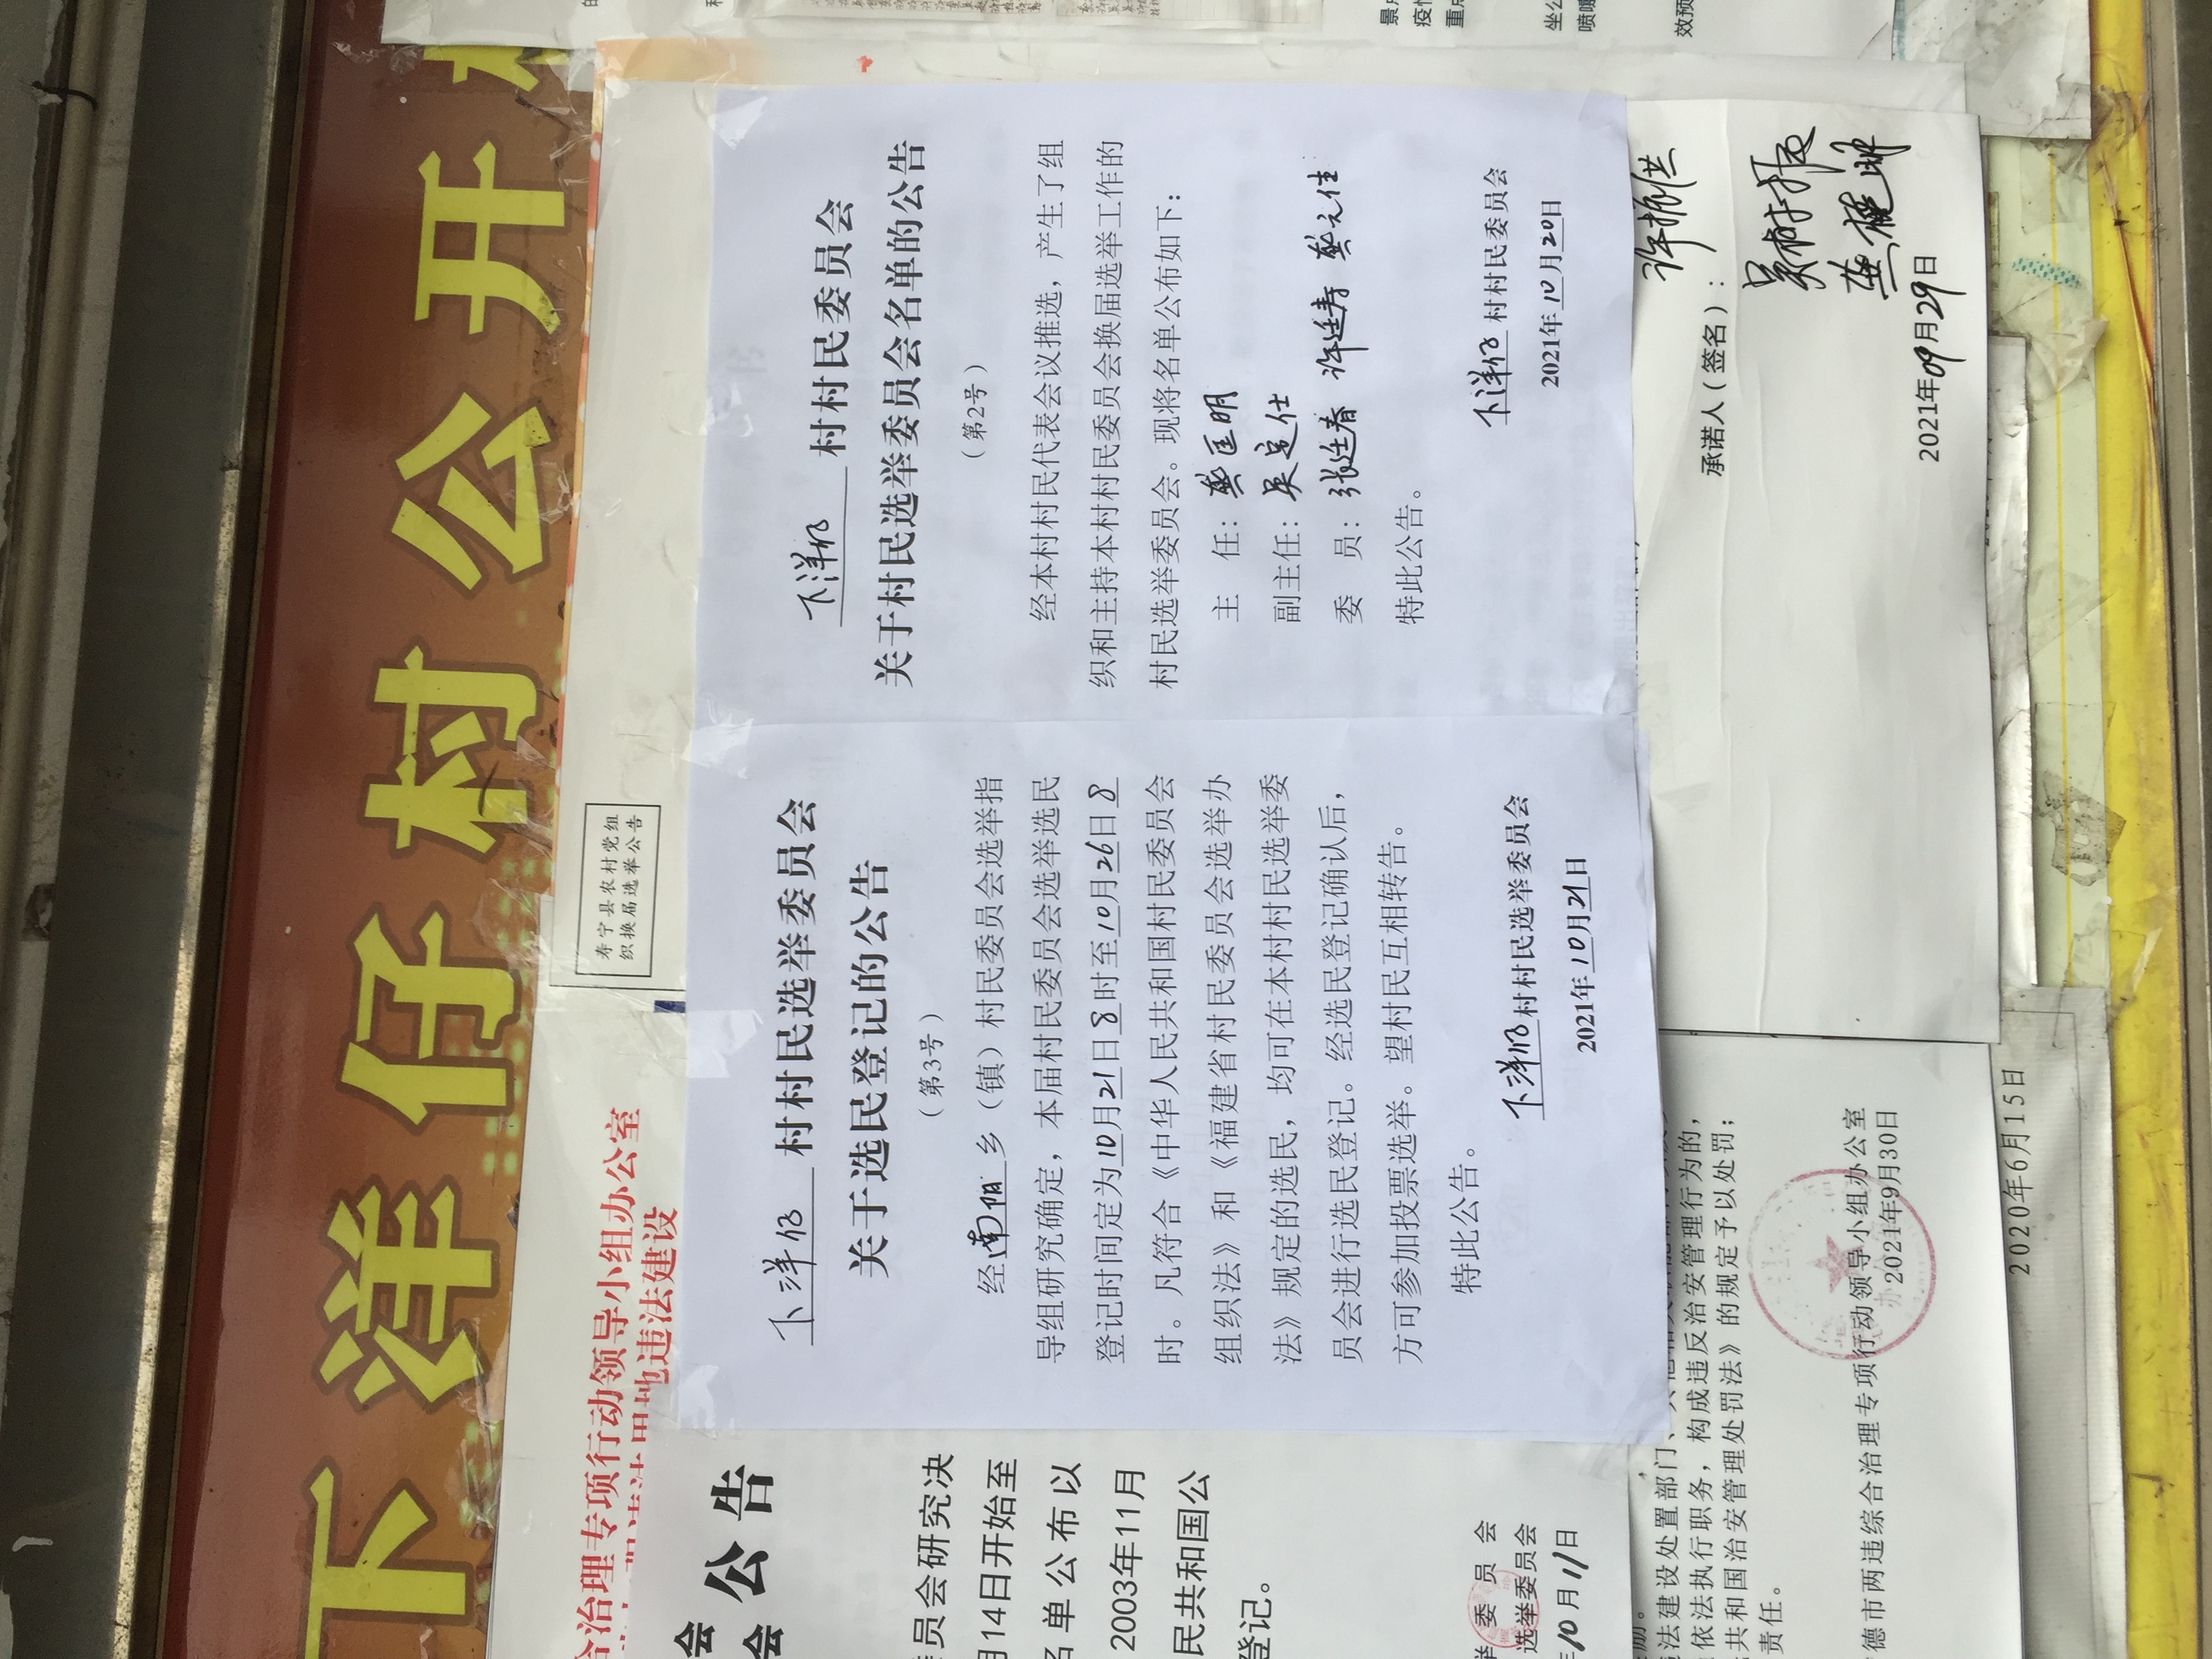 下洋仔村公开
寿宁县农村党组
织换届选举公告
合治理专项行动领导小组办公室
地违法建设
公告
员会研究决
月14日开始至
名单公布以
2003年11月
民共和国公
登记。
举委员会
选举委员会
年10月11日
下洋仔村村民选举委员会
关于选民登记的公告
（第3号）
经南阳乡（镇）村民委员会选举指
导组研究确定，本届村民委员会选举选民
登记时间定为10月21日8时至10月26日8
时。凡符合《中华人民共和国村民委员会
组织法》和《福建省村民委员会选举办
法》规定的选民，均可在本村村民选举委
员会进行选民登记。经选民登记确认后，
方可参加投票选举。望村民互相转告。
特此公告。
下洋仔村村民选举委员会
2021年10月21日
下洋仔村村民委员会
关于村民选举委员会名单的公告
（第2号）
经本村村民代表会议推选，产生了组
织和主持本村村民委员会换届选举工作的
村民选举委员会。现将名单公布如下：
主 任：龚匡明
副主任：吴定仕
委 员：张廷春 许廷寿 龚元佳
特此公告。
下洋仔村村民委员会
2021年10月20日
法建设处置部门、
依法执行职务，构成违反治安管理行为的，
共和国治安管理处罚法》的规定予以处罚；
责任。
德市两违综合治理专项行动领导小组办公室
2021年9月30日
2020年6月15日
承诺人（签名）：
2021年09月29日